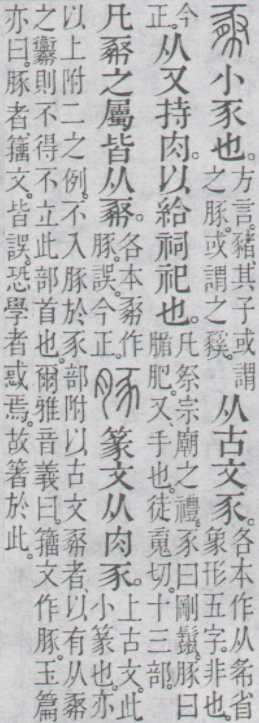 小豕也。方言。豬、其子或謂之豚。或謂之豯。从古文豕。各本作从㣇省象形五字。非也
今正。从又持肉。以給祠祀也。凡祭宗廟之禮。豕曰剛鬛。豚曰腯肥。又、手也。徒䰟切。十三部。
凡之屬皆从。各本作豚。誤。今正。篆文从肉豕。上古文。此小篆也。亦
以上附二之例。不入豚於豕部附以古文者、以有从
之則不得不立此部首也。爾雅音義曰。籒文作豚。玉篇
亦曰。豚者、籒文。皆誤。恐學者或焉。故箸於此。